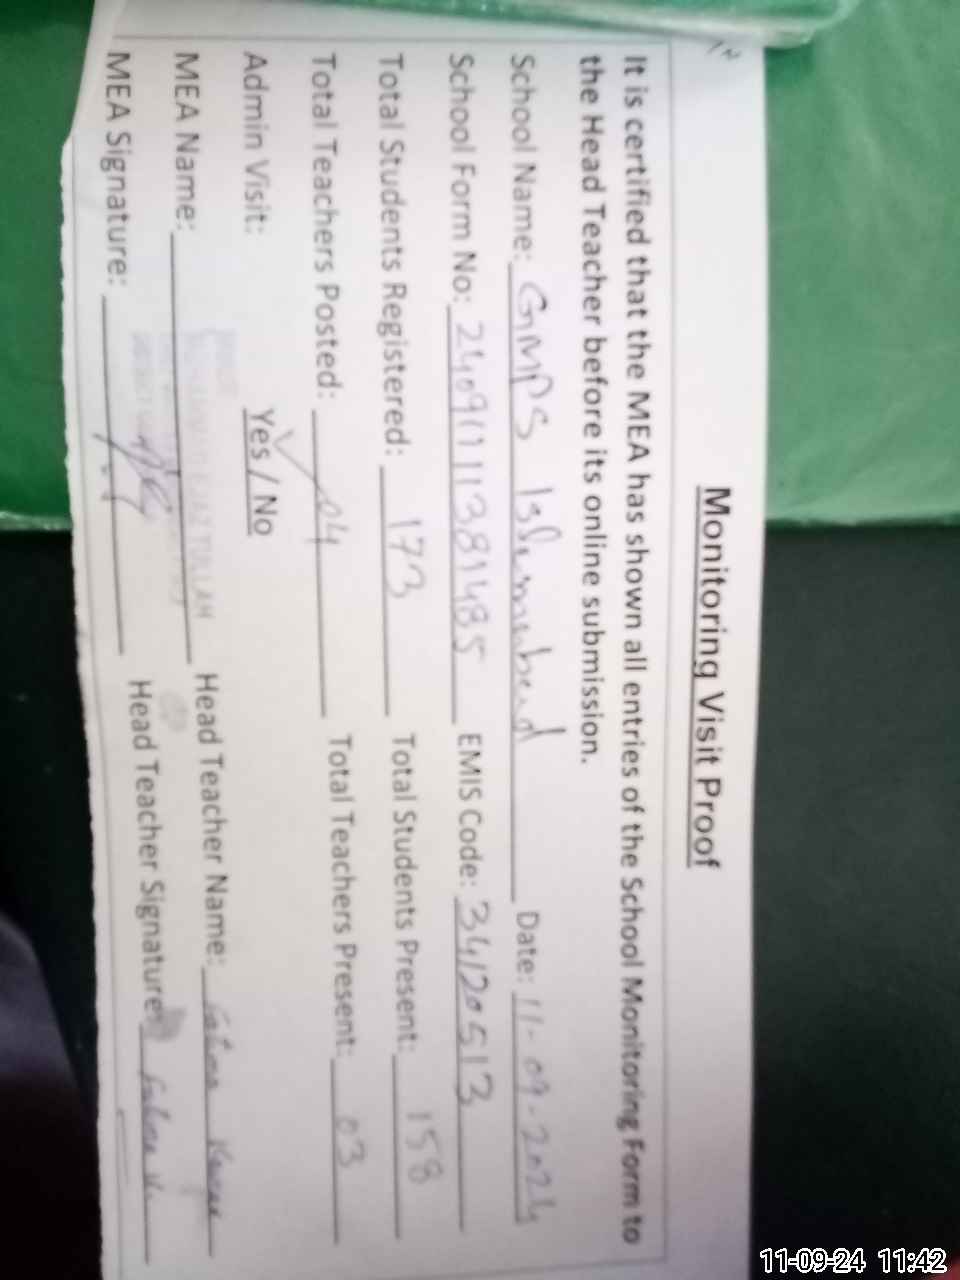 Monitoring Visit Proof
It is certified that the MEA has shown all entries of the School Monitoring Form to
the Head Teacher before its online submission.
School Name: GMPS Islamabad Date: 11-09-2024
School Form No: 2409011381485 EMIS Code: 34120513
Total Students Registered: 173 Total Students Present: 158
Total Teachers Posted: 04 Total Teachers Present: 03
Admin Visit: Yes / No
MEA Name: Head Teacher Name:
MEA Signature: Head Teacher Signature:
11-09-24 11:42